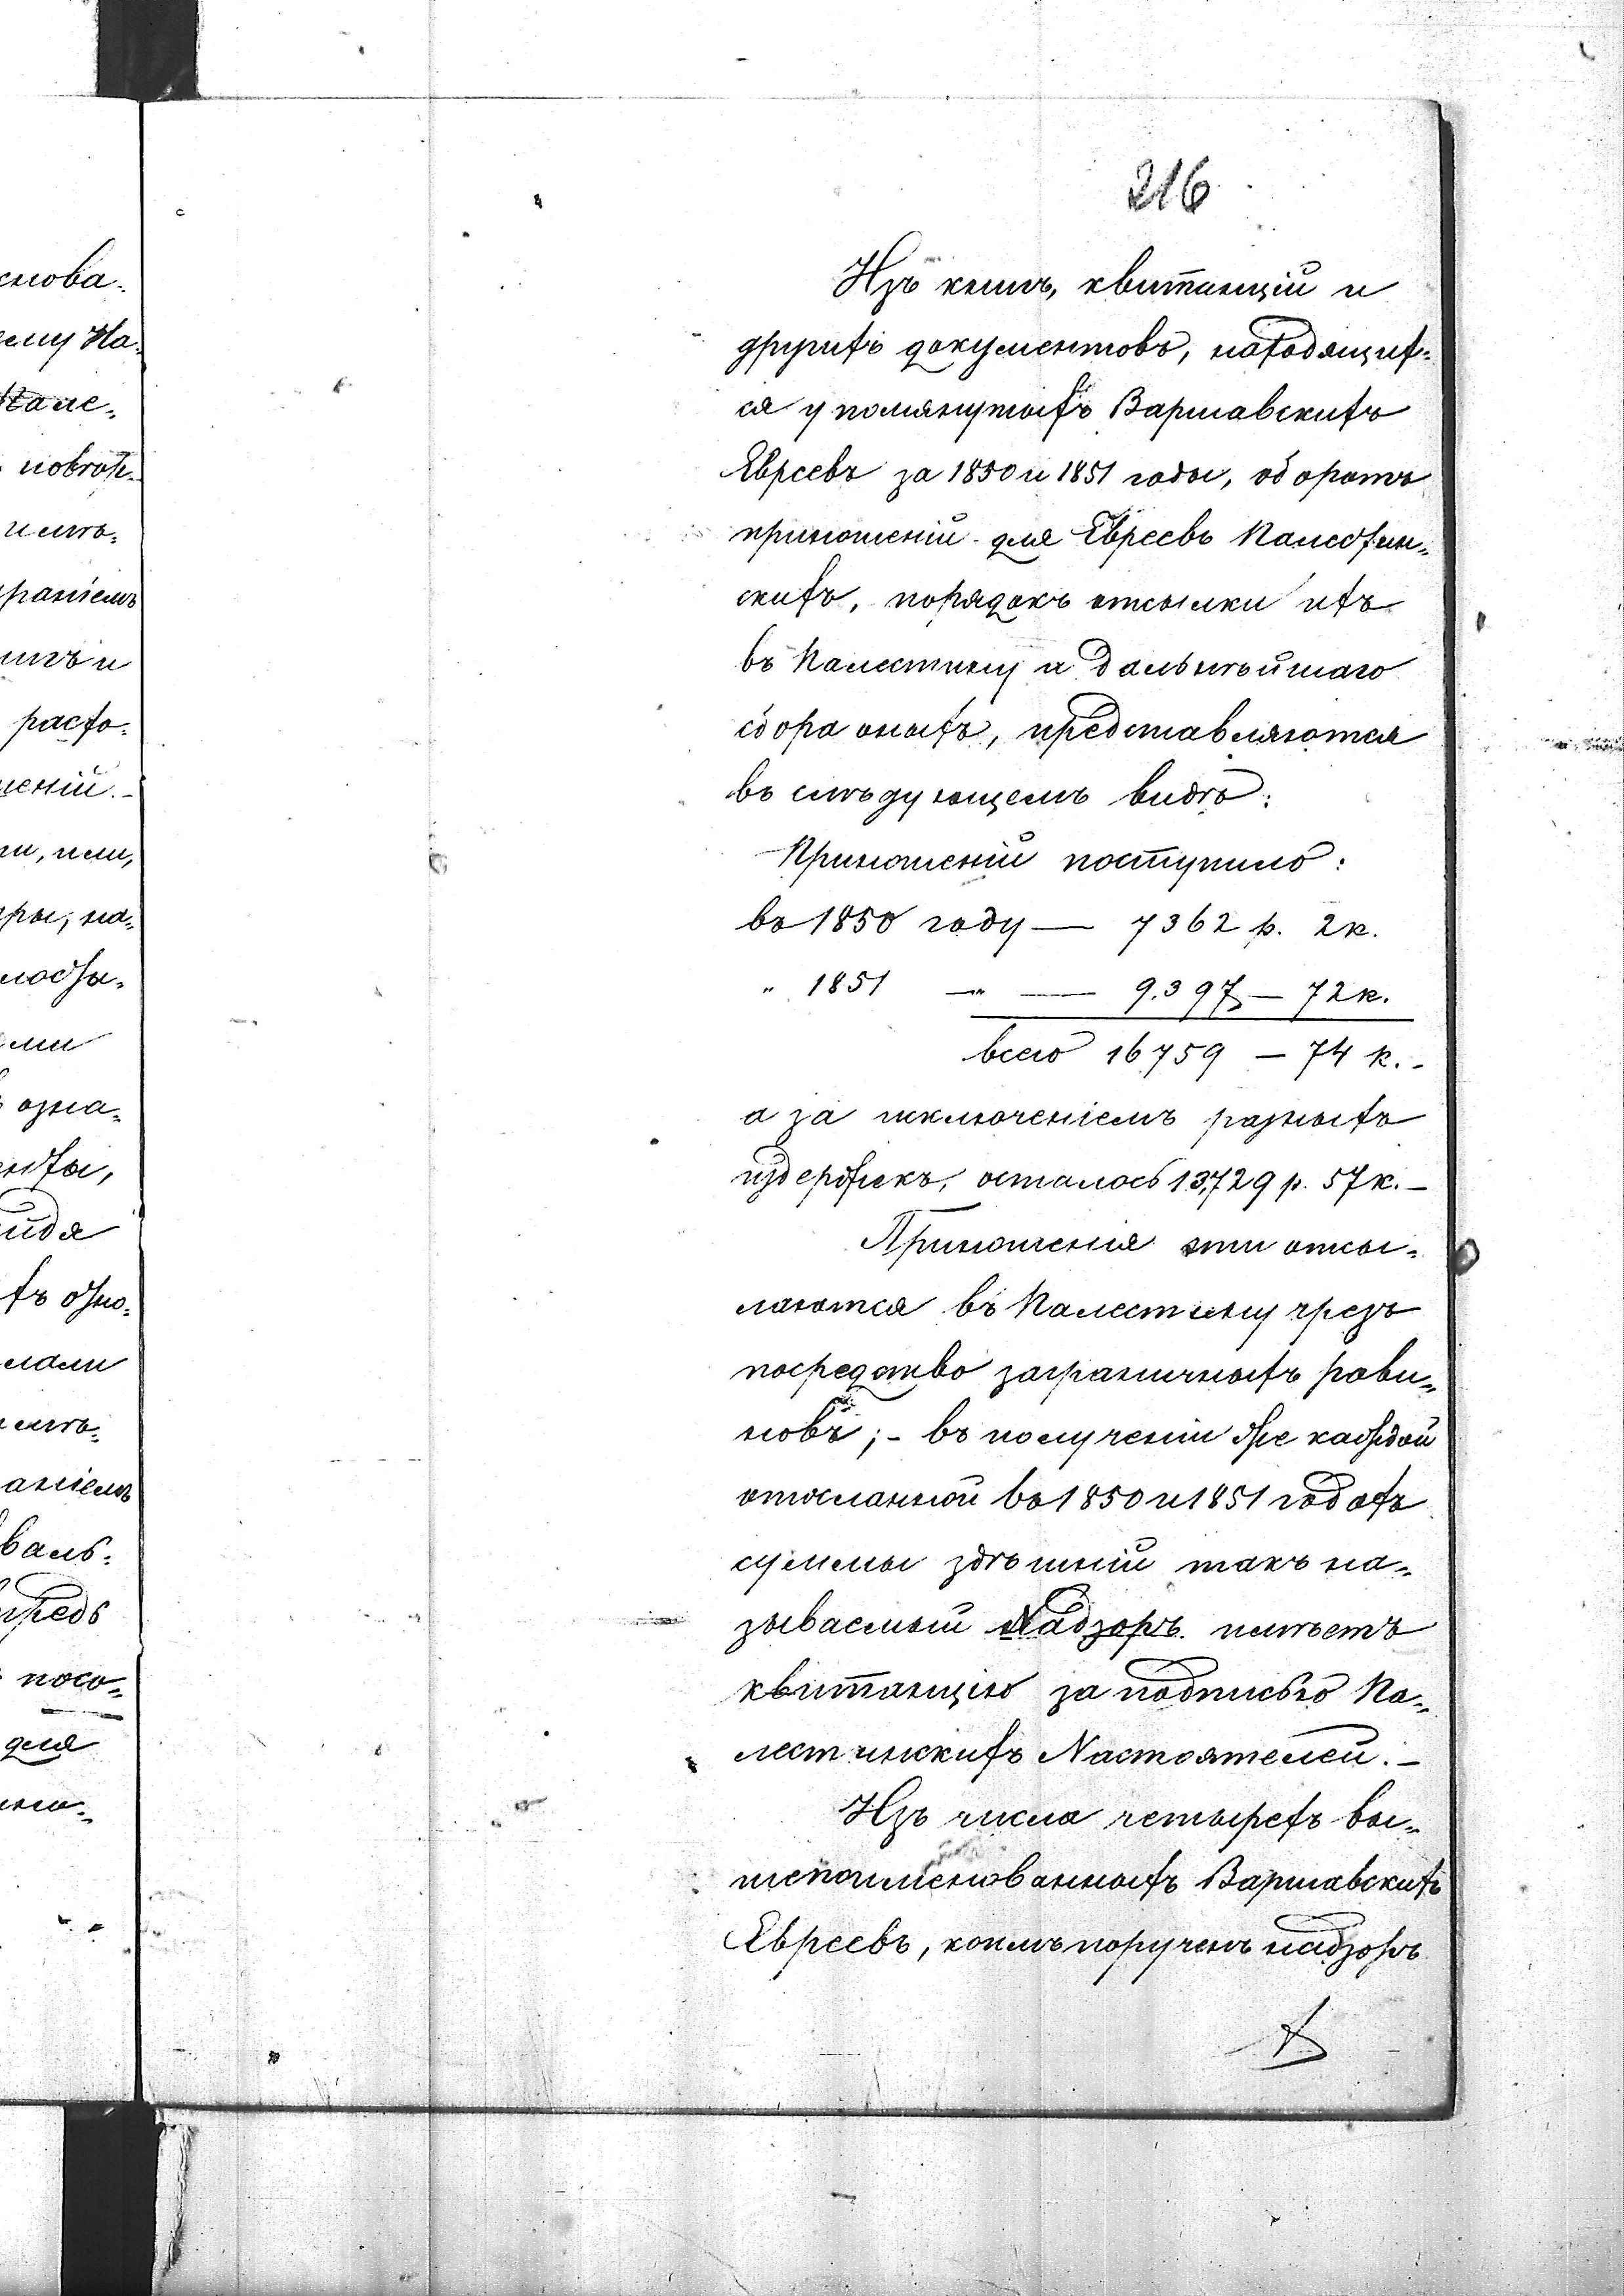 216
Изъ книгъ, квитанцій и
другихъ документовъ, находящих-
ся у помянутыхъ Варшавскихъ
Евреевъ за 1850 и 1851 годы, оборотъ
приношеній для Евреевъ Палестин-
скихъ, порядокъ отсылки ихъ
въ Палестину и дальнѣйшаго
сбора оныхъ, представляются
въ слѣдующемъ видѣ:
Приношеній поступило:
въ 1850 году — 7362 р. 2к.
" 1851 —"— 9.397 — 72к.
всего 16759 — 74 к.-
а за исключеніемъ разныхъ
издержекъ, осталось 13,729 р. 57к.—
Приношенія эти отсы-
лаются въ Палестину чрезъ
посредство заграничныхъ рави-
новъ;- въ полученіи же каждой
отосланной въ 1850 и 1851 годахъ
суммы здѣшній такъ на-
зываемый Надзоръ имѣетъ
квитанцію за подписью Па-
лестинскихъ Настоятелей.—
Изъ числа четырехъ вы-
шепоименованныхъ Варшавскихъ
Евреевъ, коимъ порученъ надзоръ